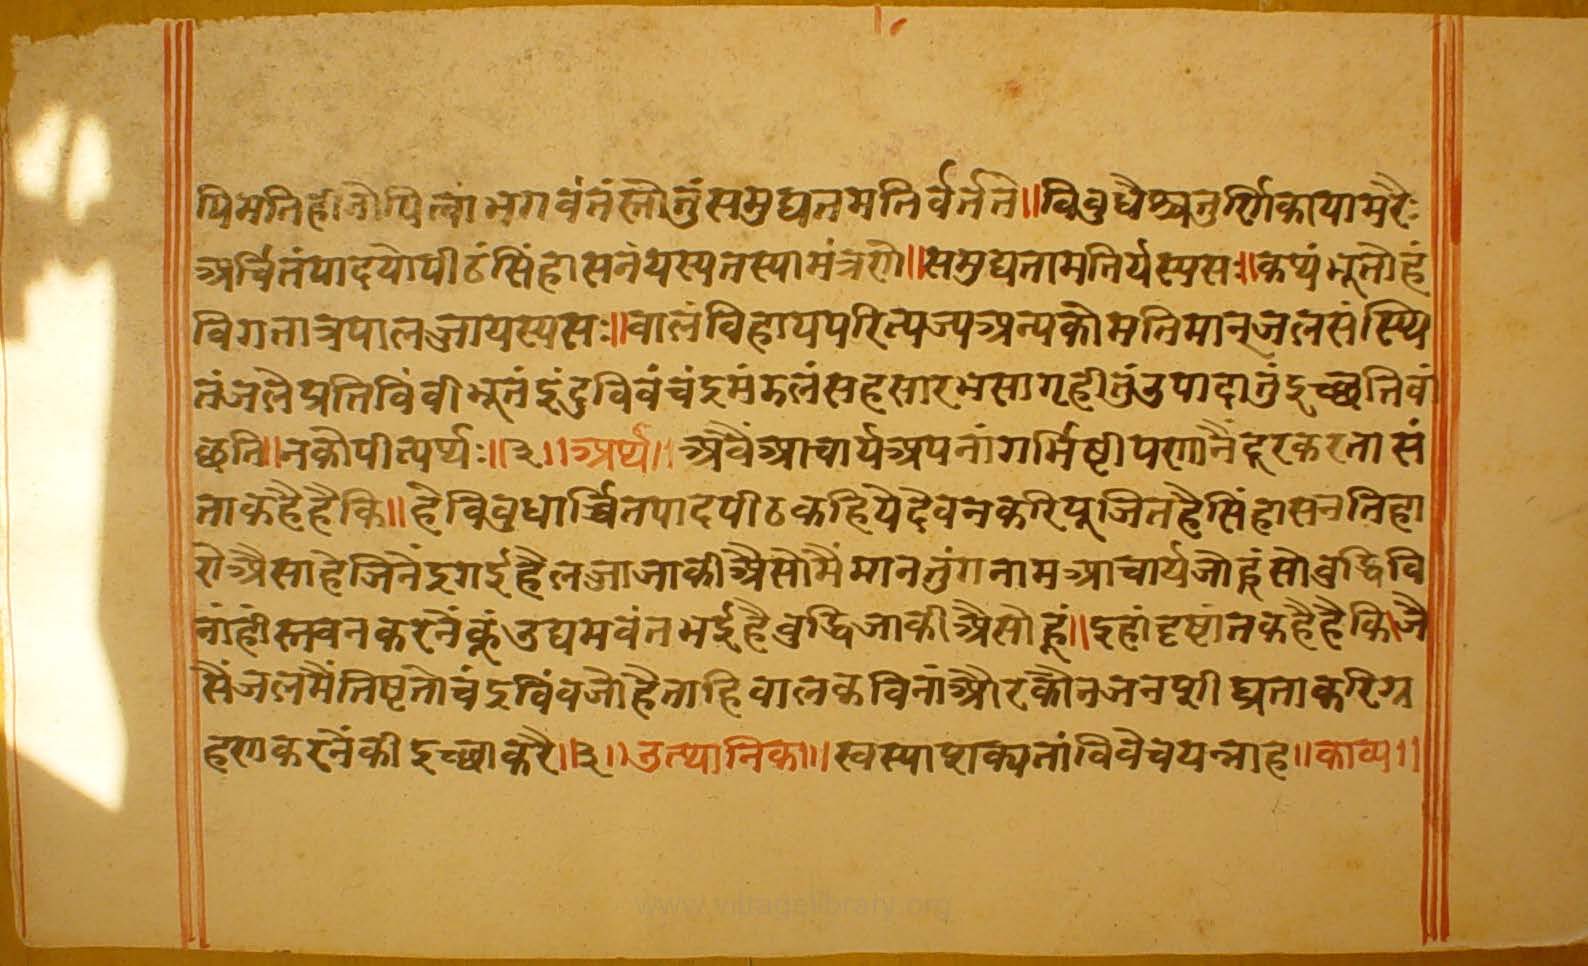 पिमतिहीनोपित्वां भगवंतंस्तोतुंसमुद्यतमतिर्वर्तते॥विवुधैश्चतुर्णिकायामरैः
अर्चितंपादयोपीठंसिंहासनंयस्यतस्यामंत्रणे॥समुद्यतामतिर्यस्यसः॥कथंभूतोहं
विगतात्रपालज्जायस्यसः॥वालंविहायपरित्यज्यअन्यकोमतिमान्जलसंस्थि
तंजलेप्रतिविंवीभूतंइंदुविवंचंद्रमंडलंसहसारभसागृहीतुंउपादातुंइच्छतिवां
छति॥नकोपीत्यर्थः॥३॥अर्थ॥अवैंआचार्यअपनांगर्मिष्टीपणानैंदूरकरतासं
ताकहैहैकि॥हेविवुधार्च्चितपादपीठकहियेदेवनकरिपूजितहैसिंहासनतिहा
रोअैसाहेजिनेंद्रगईहैलज्जाजाकीअैसोमैंमानतुंगनामआचार्यजोहूंसोवुद्धिवि
नांहींस्तवनकरनेंकूंउद्यमवंतभईहैवुद्धिजाकीअैसोहूं॥इहांदृष्टांतकहैहैकि।जै
सैंजलमैंतिष्टतोचंद्रविंवजोहैताहिवालकविनांऔरकौनजनशीघ्रताकरिग्र
हणकरनेंकीइच्छाकरै॥३॥उत्थानिका॥स्वस्याशक्यतांविवेचयन्नाह॥काव्य॥